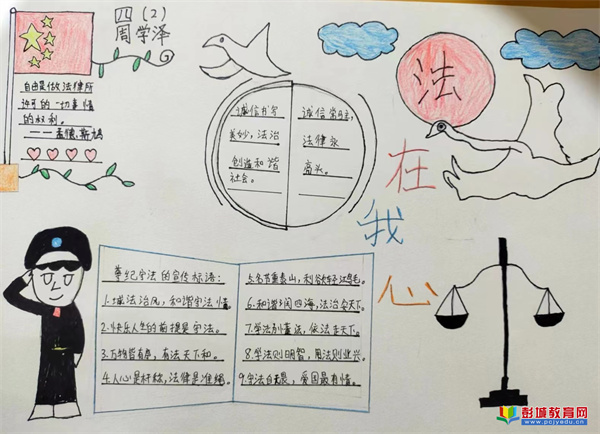 四(2)
周学泽
自由是做法律所
许可的一切事情
的权利。
——孟德斯鸠
诚信书写
美妙,法治
创造和谐
社会。
诚信常驻,
法律永
高头。
法
在
我
心
尊纪守法的宣传标语:
1.城法治风,和谐守法情。
2.快乐人生的前提是守法。
3.万物皆有序,有法天下和。
4.人心是杆称,法律是准绳。
5.名节重泰山,利谷轻鸿毛
6.和谐四海,法治安天下。
7.学法别重法,依法走天下。
8.学法则明智,用法则业兴。
9.学法自表晨,爱国最有情。
彭城教育网
www.pcjyedu.cn